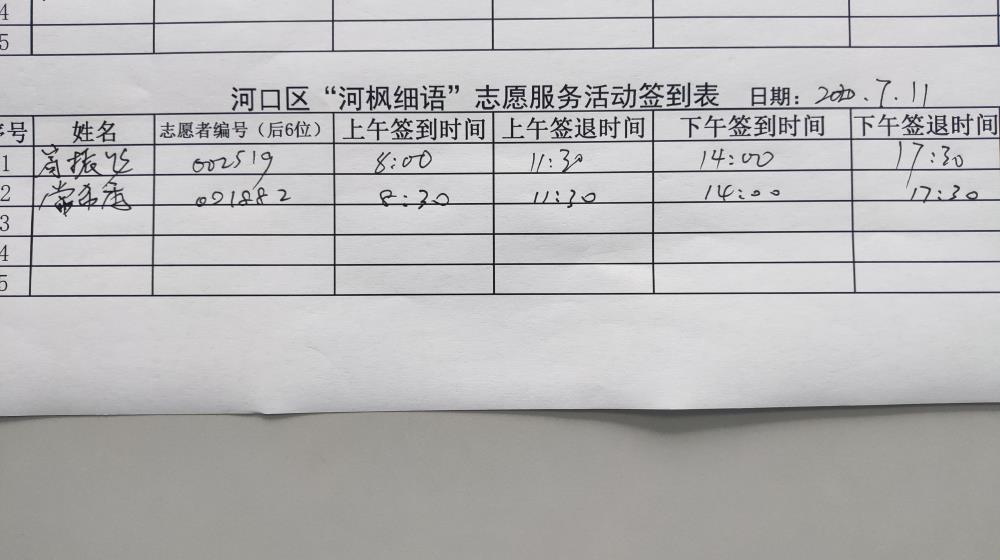 4
5
河口区“河枫细语”志愿服务活动签到表 日期：2020.7.11
序号 姓名 志愿者编号（后6位） 上午签到时间 上午签退时间 下午签到时间 下午签退时间
1 高振飞 002519 8:00 11:30 14:00 17:30
2 021882 8:30 11:30 14:00 17:30
3
4
5